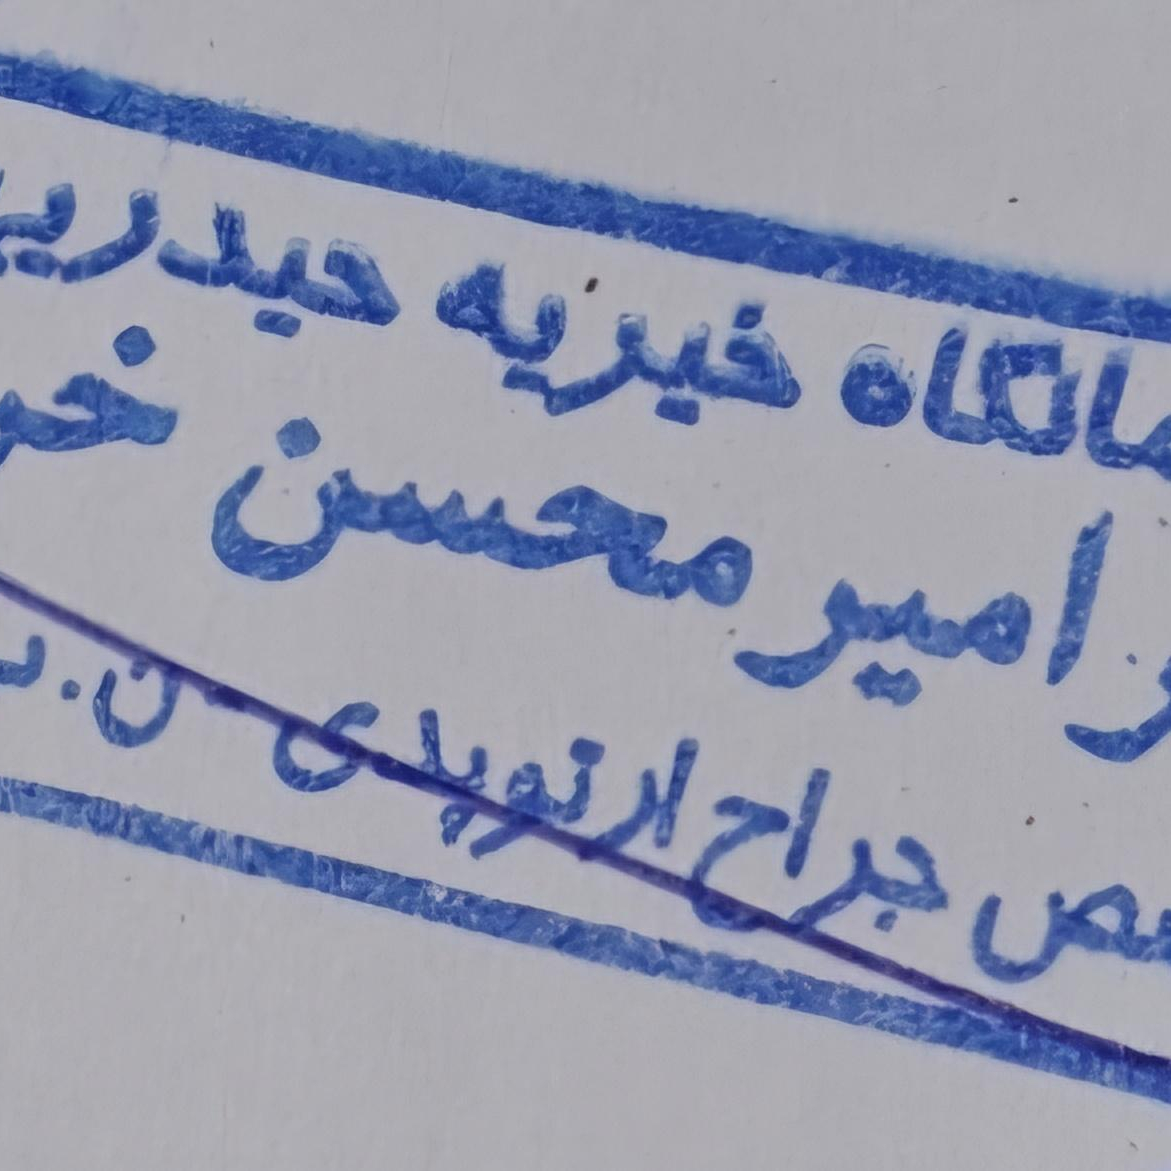 مانگاه خیریه حیدری
امیر محسن
جراح ارتوپدی ن.